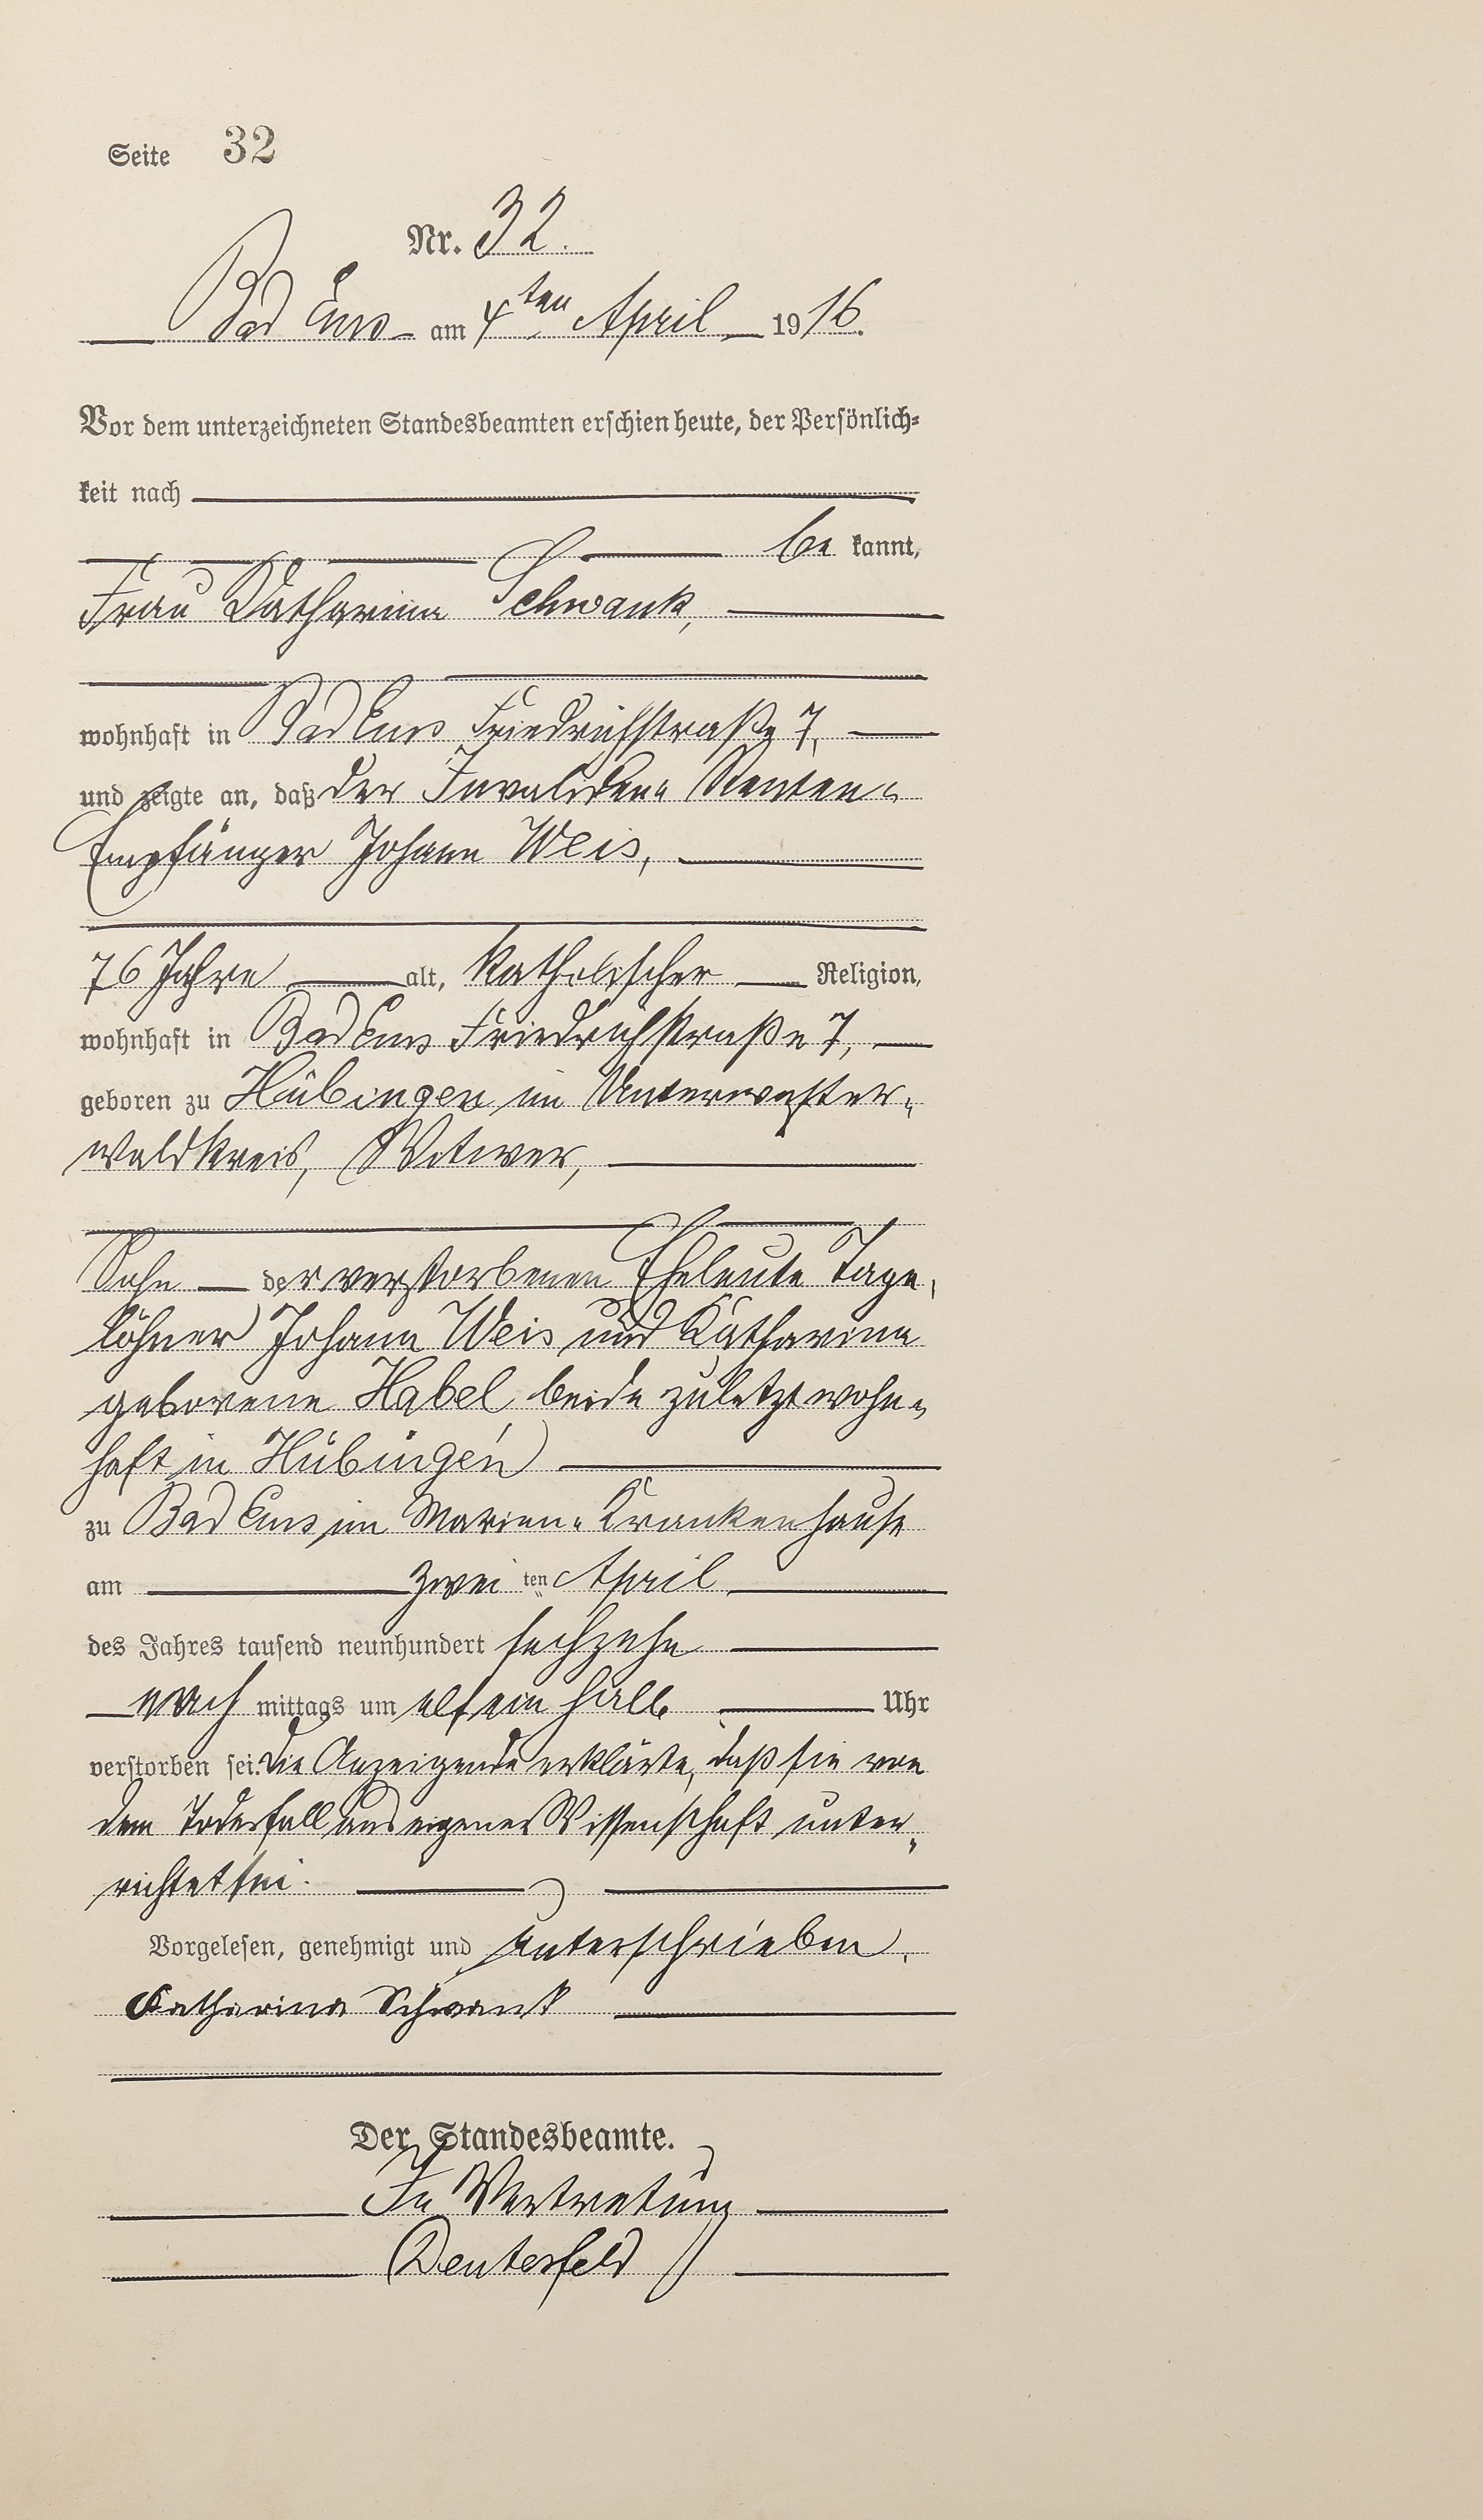 Seite 32
Nr. 32.
Bad Ems am 4ten April 1916.
Vor dem unterzeichneten Standesbeamten erschien heute, der Persönlich-
keit nach
be kannt,
Frau Katharina Schwank,
wohnhaft in Bad Ems Friedrichstraße 7,
und zeigte an, daß der Invaliden- Renten-
Empfänger Johann Weis,
76 Jahre alt, katholischer Religion,
wohnhaft in Bad Ems Friedrichstraße 7,
geboren zu Hübingen im Unterwester-
waldkreis, Witwer,
Sohn der verstorbenen Eheleute Tage-
löhner Johann Weis und Katharina
geborene Habel, beide zuletzt wohn-
haft in Hübingen
zu Bad Ems im Marien-Krankenhause
am zwei ten April
des Jahres tausend neunhundert sechzehn
nach mittags um elf ein halb Uhr
verstorben sei. Die Anzeigende erklärte, daß sie von
dem Todesfall aus eigener Wissenschaft unter-
richtet sei.
Vorgelesen, genehmigt und unterschrieben.
Katharina Schwank
Der Standesbeamte.
In Vertretung
Deutesfeld